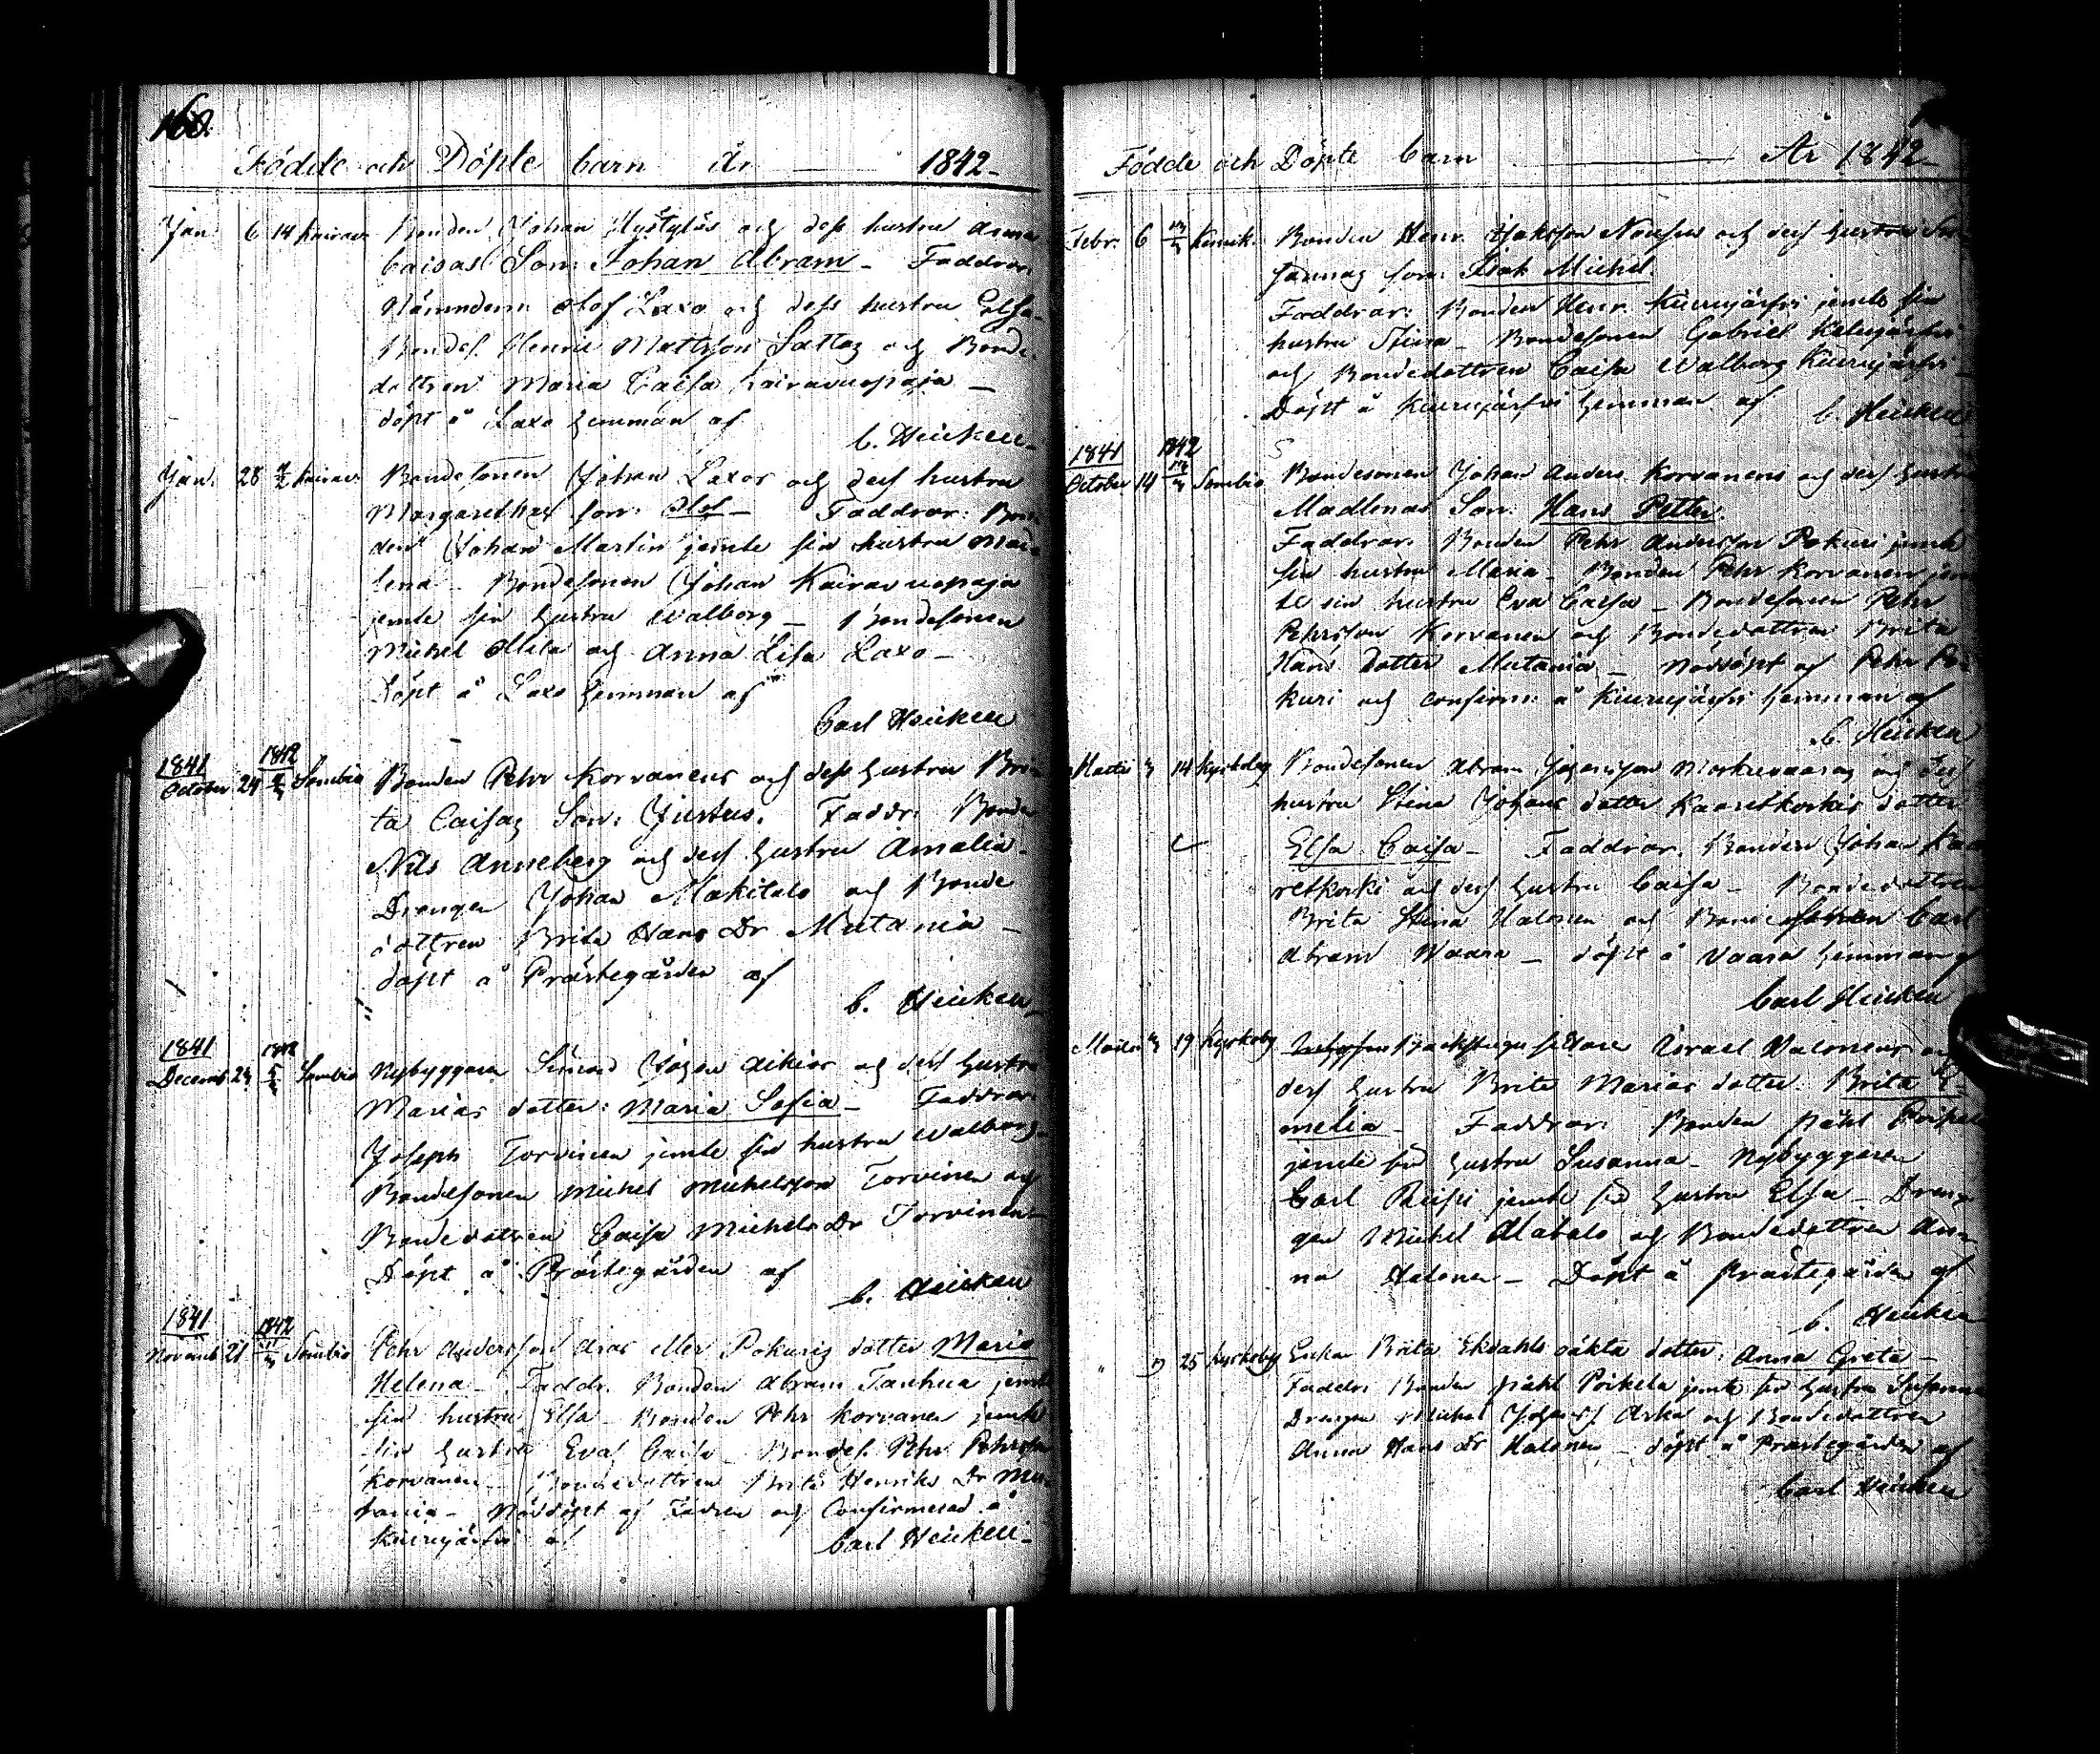 160.
Födde och Döpte barn år 1842-
Jan. 6 14 Kairav. Bonden Johan Hyötyläs och dess hustru Anna
Caisas Son: Johan Abram - Faddrar:
Nämndem: Olof Laxo och dess hustru Elsa-
Bondes. Henric Mattsson Sattas och Bonde
dottren Maria Caisa Kairavuopaja -
döpt å Laxo hemman af
C. Heicken-
Jan. 28 Kairav. Bondesonen Johan Laxos och dess hustru
Margarethas son: Olof - Faddrar: Bon-
den Johan Martin jemte sin hustru Mad-
lena - Bondesonen Johan Kairavuopaja
jemte sin hustru Walborg - Bondesonen
Michel Ollila och Anna Lisa Laxo -
Döpt å Laxo hemman af
Carl Heicken
1841 1842
October 24 Sombio Bonden Pehr Korvanens och dess hustru Bri-
ta Caisas Son: Justus. Faddr: Bonden
Nils Anneberg och dess hustru Amalia-
Drengen Johan Mäkitalo och Bonde
dottren Brita Hans Dr Mutania -
döpt å Prästegården af
C. Heicken-
1841 1842
Decemb. 24 Sombio Nybyggaren Simond Johan Aikios och dess hustru
Marias dotter: Maria Sofia - Faddrar:
Joseph Torvinen jemte sin hustru Walborg-
Bondesonen Michel Michelsson Torvinen och
Bondedottren Caisa Michels Dr Torvinen-
Döpt å Prästegården af
C. Heicken
1841 1842
Novemb. 21 Sombio Pehr Andersson Aras eller Pokuris dotter Maria
Helena - Faddr. Bonden Abram Tanhua jemte
sin hustru Elsa - Bonden Pehr Korvanen jemte
sin hustru Eva Caisa - Bondes. Pehr Pehrsson
Korvanen - Bondedottren Brita Henriks Dr Mu-
tania - Nöddöpt af Fadren och Confirmerad å
Kiurujärfvi af
Carl Heicken-
Födde och Döpte barn År 1842-
Febr. 6 Bonden Henr. Isaksson Nousus och dess hustru
Son: Isak Michel
Faddrar: Bonden Henr. Kiurujärfvi jemte sin
hustru Stina - Bondesonen Gabriel Kiurujärfvi
och Bondedottren Caisa Walborg Kiurujärfvi -
Döpt å Kiurujärfvi hemman af C. Heicken
1841 1842
October 14 Sombio Bondesonen Johan Anders Korvanens och dess hustru
Madlenas Son: Hans Petter.
Faddrar: Bonden Pehr Andersson Pokuri jemte
sin hustru Maria - Bonden Pehr Korvanen jem-
te sin hustru Eva Caisa - Bondesonen Pehr
Pehrsson Korvanen och Bondedottren Brita
Hans dotter Mutania - Nöddöpt af Pehr Po-
kuri och confirm: å Kiurujärfvi hemman af
C. Heicken
Martii 14 Kyrkoby Bondesonen Abram Johansson och dess
hustru Stina Johans dotter Kaaretkoskis dotter
Elsa Caisa - Faddrar: Bonden Johan Kaa-
retkoski och dess hustru Caisa - Bondedottren
Brita Stina Halonen och Carl
Abram Waara - döpt å Vaara hemman af
Carl Heicken
Martii 19 Kyrkoby Israel Halonens och
dess hustru Brita Marias dotter: Brita A-
melia - Faddrar: Bonden Påhl Poikela
jemte sin hustru Susanna - Nybyggaren
Carl jemte sin hustru Elsa - Dren-
gen Michel Alatalo och Bondedottren An-
na Halonen - Döpt å Prästegården af
C. Heicken
" 25 Kyrkoby Enkan Brita Ekdahls oäkta dotter: Anna Greta -
Faddr: Bonden Påhl Poikela jemte sin hustru Susanna
Drengen Michel Arka och Bondedottren
Anna Hans Dr Halonen - döpt å Prästegården af
Carl Heicken